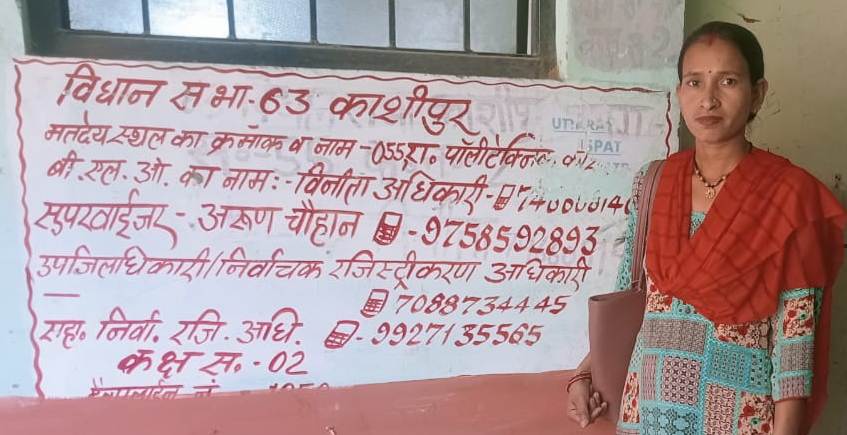 विधान सभा-63 काशीपुर
मतदेय स्थल का क्रमांक व नाम - 055 रा० पॉलीटेक्निक
बी.एल.ओ. का नाम:- विनीता अधिकारी -
सुपरवाईजर - अरूण चौहान - 9758592893
उपजिलाधिकारी/निर्वाचक रजिस्ट्रीकरण अधिकारी
— 7088734445
सह० निर्वा. रजि. अधि. - 9927135565
कक्ष स०-02
हैल्पलाईन नं